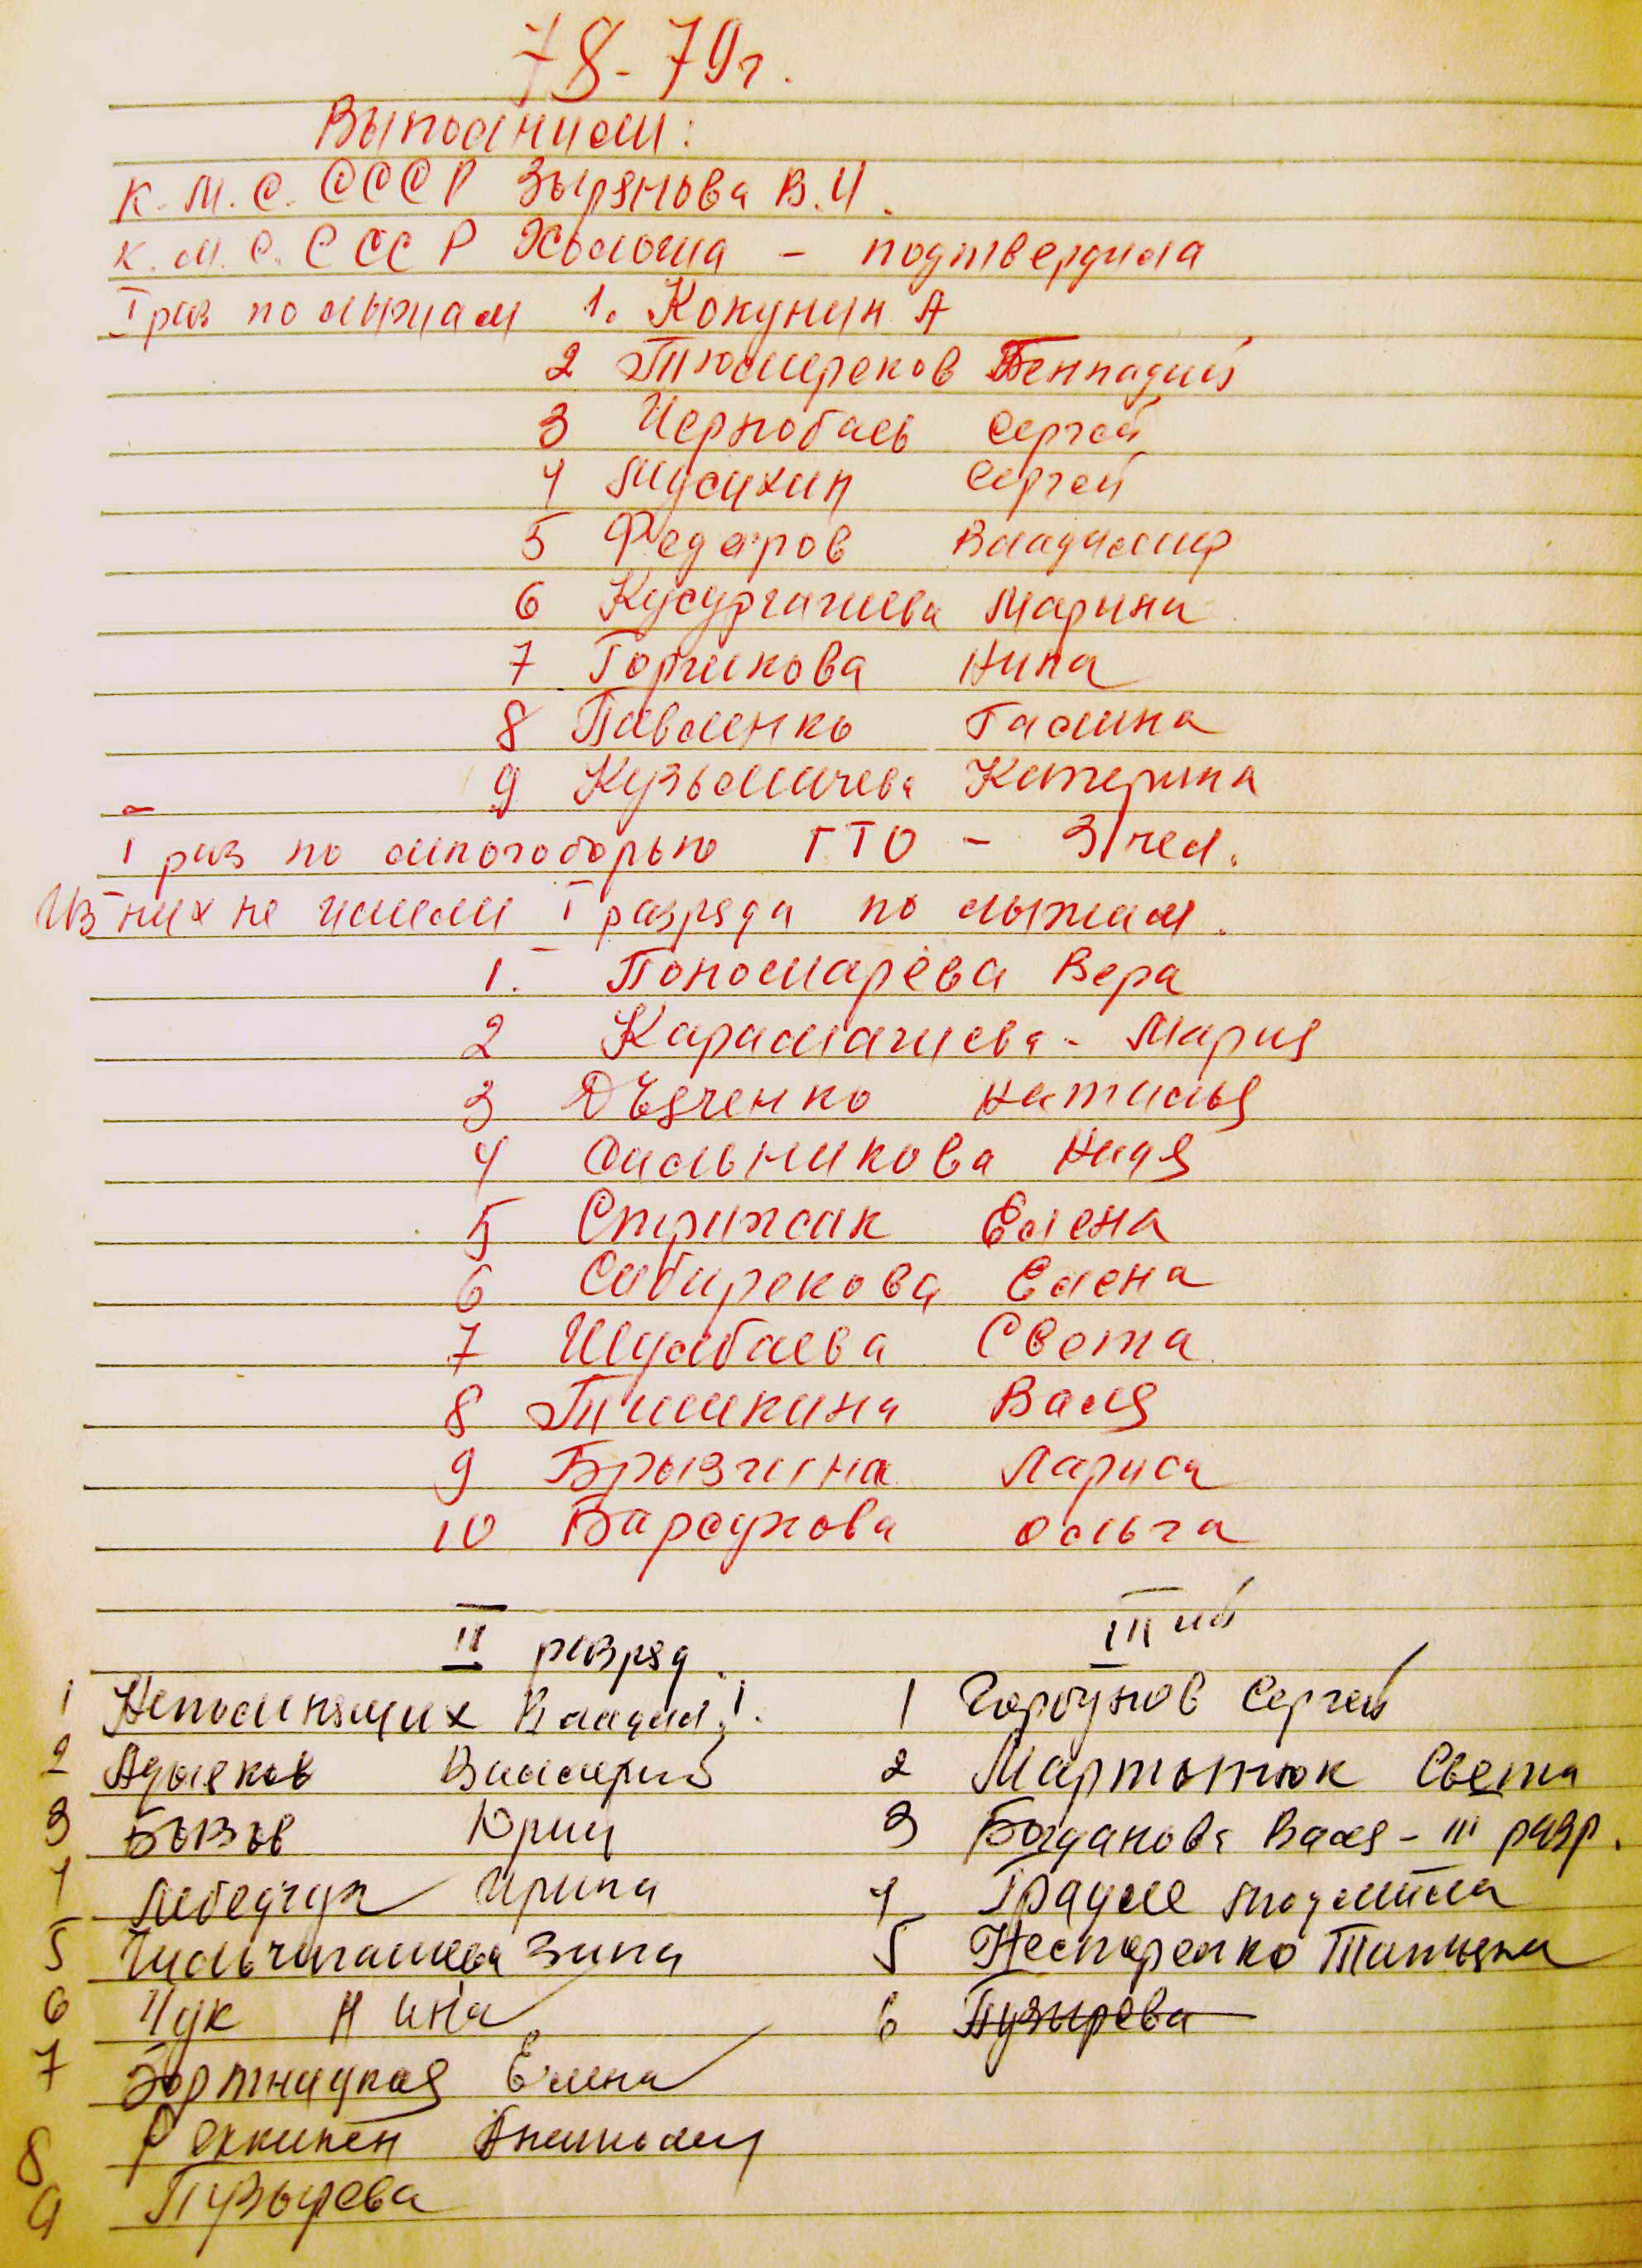 78-79г.
Выполнили:
К.М.С. СССР Зырянова В.И.
К.М.С. СССР Холоша - подтвердила
I раз по лыжам 1. Кокунин А
2 Тюмереков Геннадий
3 Чернобаев Сергей
4 Мусихин Сергей
5 Федоров Владимир
6 Кусургашева Марина
7 Горшкова Нина
8 Павленко Галина
9 Кузьмичева Катерина
I раз по многоборью ГТО - 31 чел.
Из них не имели I разряда по лыжам.
1. Пономарёва Вера
2 Карамашева - Мария
3 Дъяченко Наталья
4 Сальникова Надя
5 Стрижак Елена
6 Сибирекова Елена
7 Шулбаева Света
8 Тишкина Валя
9 Брызгина Лариса
10 Барсукова Ольга
II разряд. III ий
1 Непомнящих Владим. 1 Горбунов Сергей
2 Адыяков Валерий 2 Мартынюк Света
3 Бызов Юрий 3 Богданова Валя - III разр.
4 Лебедчук Ирина 4 Людмила
5 Зина 5 Нестеренко Татьяна
6 Чук Нина 6 Пузырёва
7 Бортницкая Елена
8 Анатолий
9 Пузырева